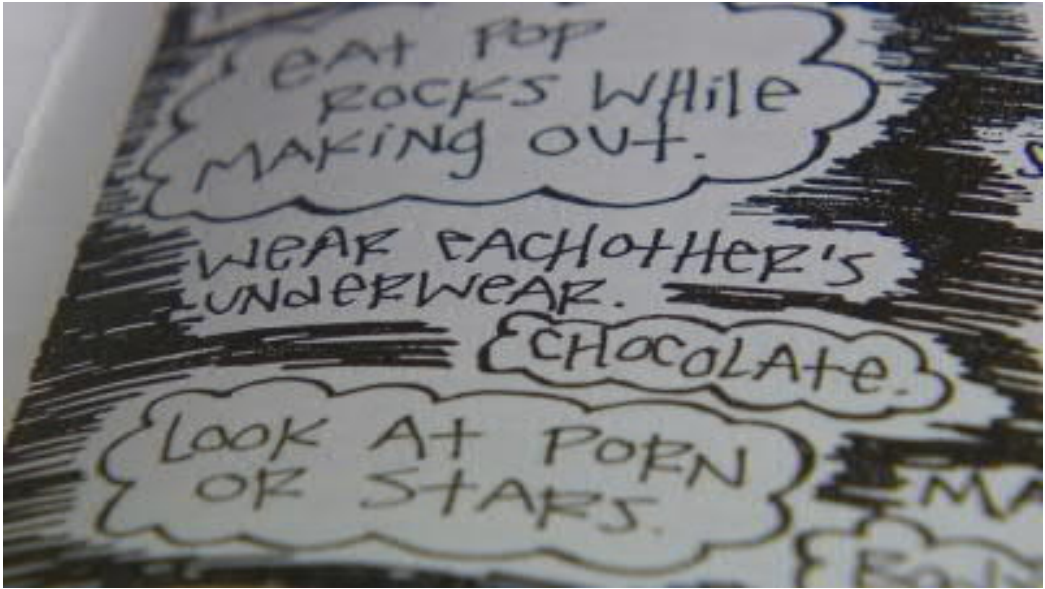 eAt Pop
ROCKS WHile
MAKiNg OUt.
WeAR eACHOtHeR'S
UNdeRWeAR.
CHOCOLAte.
LOOK At PORN
OR StARS.
MA